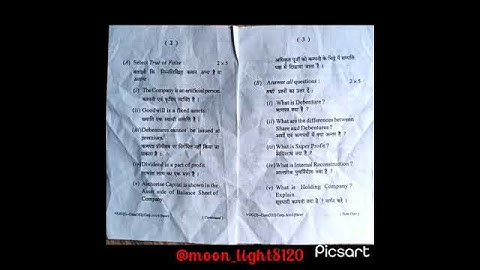 ( 2 )
(A) Select True or False 2 × 5
बताइये कि निम्नलिखित कथन सत्य है या
असत्य
(i) The Company is an artificial person.
कम्पनी एक कृत्रिम व्यक्ति है ।
(ii) Goodwill is a fixed assets.
ख्याति एक स्थायी सम्पत्ति है ।
(iii) Debentures cannot be issued at
premium.
सकता है ।
(iv) Dividend is a part of profit.
लाभांश लाभ का एक भाग है ।
(v) Authorise Capital is shown in the
Asset side of Balance Sheet of
Company.
( Continued )
( 3 )
अधिकृत पूंजी को कम्पनी के चिट्ठे में सम्पत्ति
पक्ष में दिखाया जाता है ।
(B) Answer all questions : 2 × 5
सभी प्रश्नों का उत्तर दें ।
(i) What is Debenture ?
ऋणपत्र क्या है ?
(ii) What are the differences between
Share and Debentures ?
अंशों एवं ऋणपत्रों में क्या अन्तर है ?
(iii) What is Super Profit ?
क्या है ?
(iv) What is Internal Reconstruction ?
आन्तरिक पुनर्निर्माण क्या है ?
(v) What is Holding Company ?
Explain.
सूत्रधारी कम्पनी क्या है ? वर्णन करें ।
( Turn Over )
@moon_light8120
Picsart